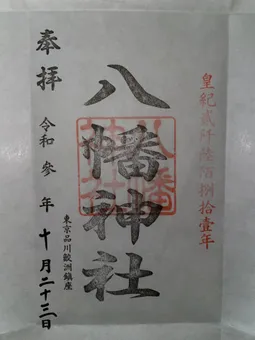 皇紀貳阡陸佰捌拾壹年
八幡神社
東京品川鮫洲鎮座
奉拝
令和参年十月二十三日